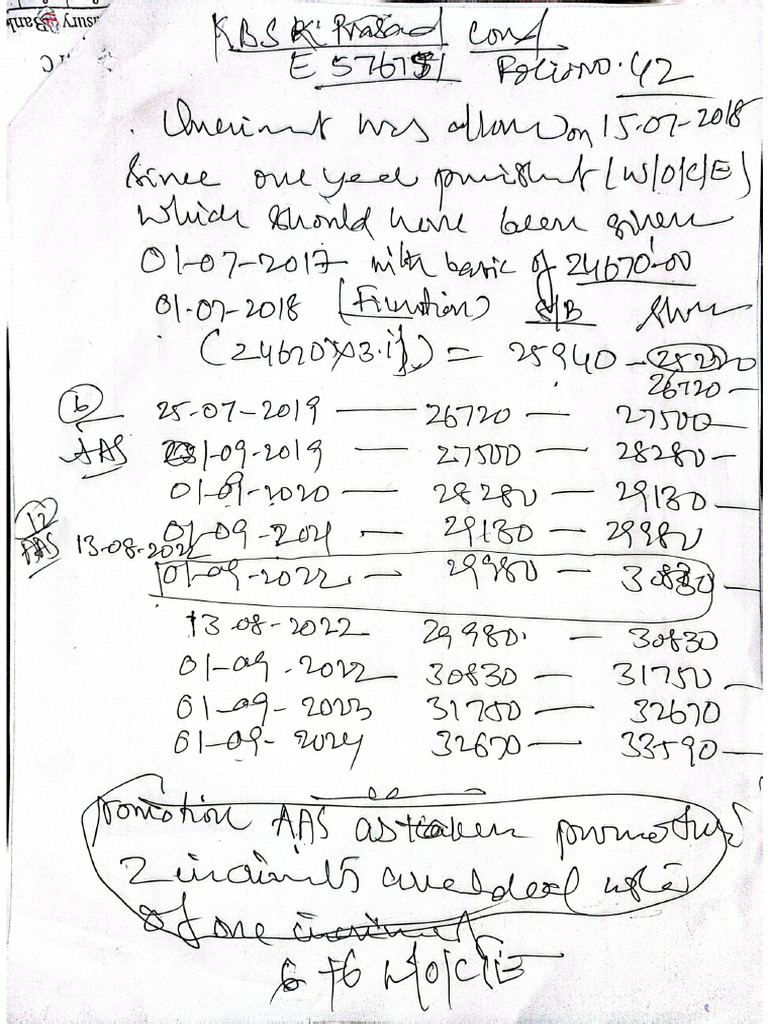 asury
Bank
KBSK. Prasad Conf
E 576751 Folio no. 42
Increment was allow on 15-07-2018
Since one year punishment (W/O/C/E)
Which should have been given
01-07-2017 with basic of 24670-00
01-07-2018 (Fixation) E/B Show
(24670 ) = 25940 - 25220
26720 -
6 25-07-2019 — 26720 — 27500
AAS 01-09-2019 — 27500 — 28280 -
01-09-2020 — 28280 — 29130
12 01-09-2021 — 29130 — 29980
AAS 13-08-2022
01-09-2022 — 29980 — 30830 -
13-08-2022 29980 — 30830
01-09-2022 — 30830 — 31750
01-09-2023 31750 — 32670
01-09-2024 32670 — 33590 -
Promotion AAS as taken
2
of one increment
6 + 6 W/O/C/E